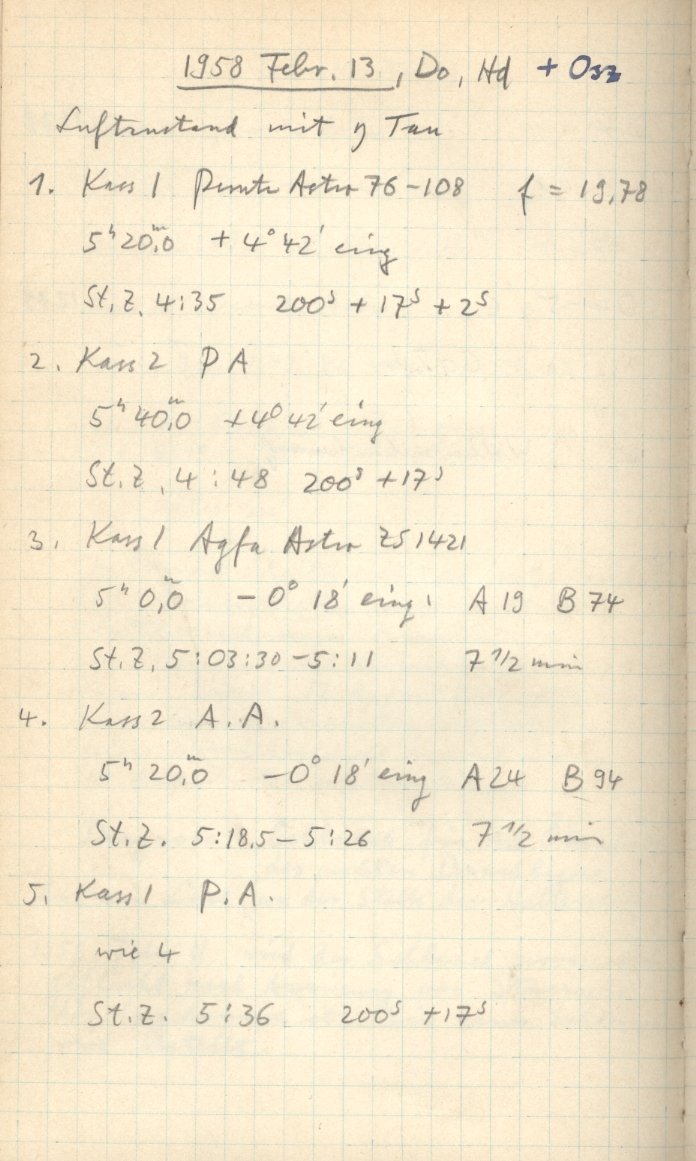 1958 Febr. 13, Do, Hd + Osz
Luftzustand mit η Tau
1. Kass 1 Perutz Astro 76-108 f = 19,78
5ʰ 20,ᵐ0 + 4° 42' eing
St.Z. 4:35 200ˢ + 17ˢ + 2ˢ
2. Kass 2 P A
5ʰ 40,ᵐ0 +4° 42' eing
St.Z. 4:48 200ˢ +17ˢ
3. Kass 1 Agfa Astro Z51421
5ʰ 0,ᵐ0 -0° 18' eing. A 19 B 74
St.Z. 5:03:30-5:11 7 1/2 min
4. Kass 2 A.A.
5ʰ 20,ᵐ0 -0° 18' eing A 24 B 94
St.Z. 5:18,5-5:26 7 1/2 min
5. Kass 1 P.A.
wie 4
St.Z. 5:36 200ˢ +17ˢ